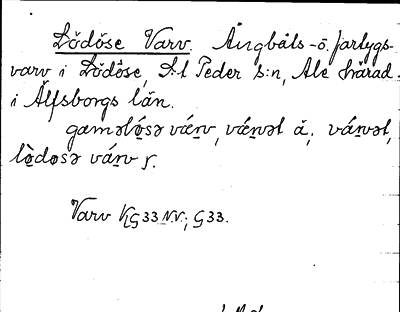 Lödöse Varv. Ångbåts- o. fartygs-
varv i Lödöse, S:t Peder s:n, Ale härad
i Älfsborgs län.
gaməlǿsə várv, várvət ă; várvət,
lø̀dosə várv ƒ.
Varv KG33 N.V.; G33.